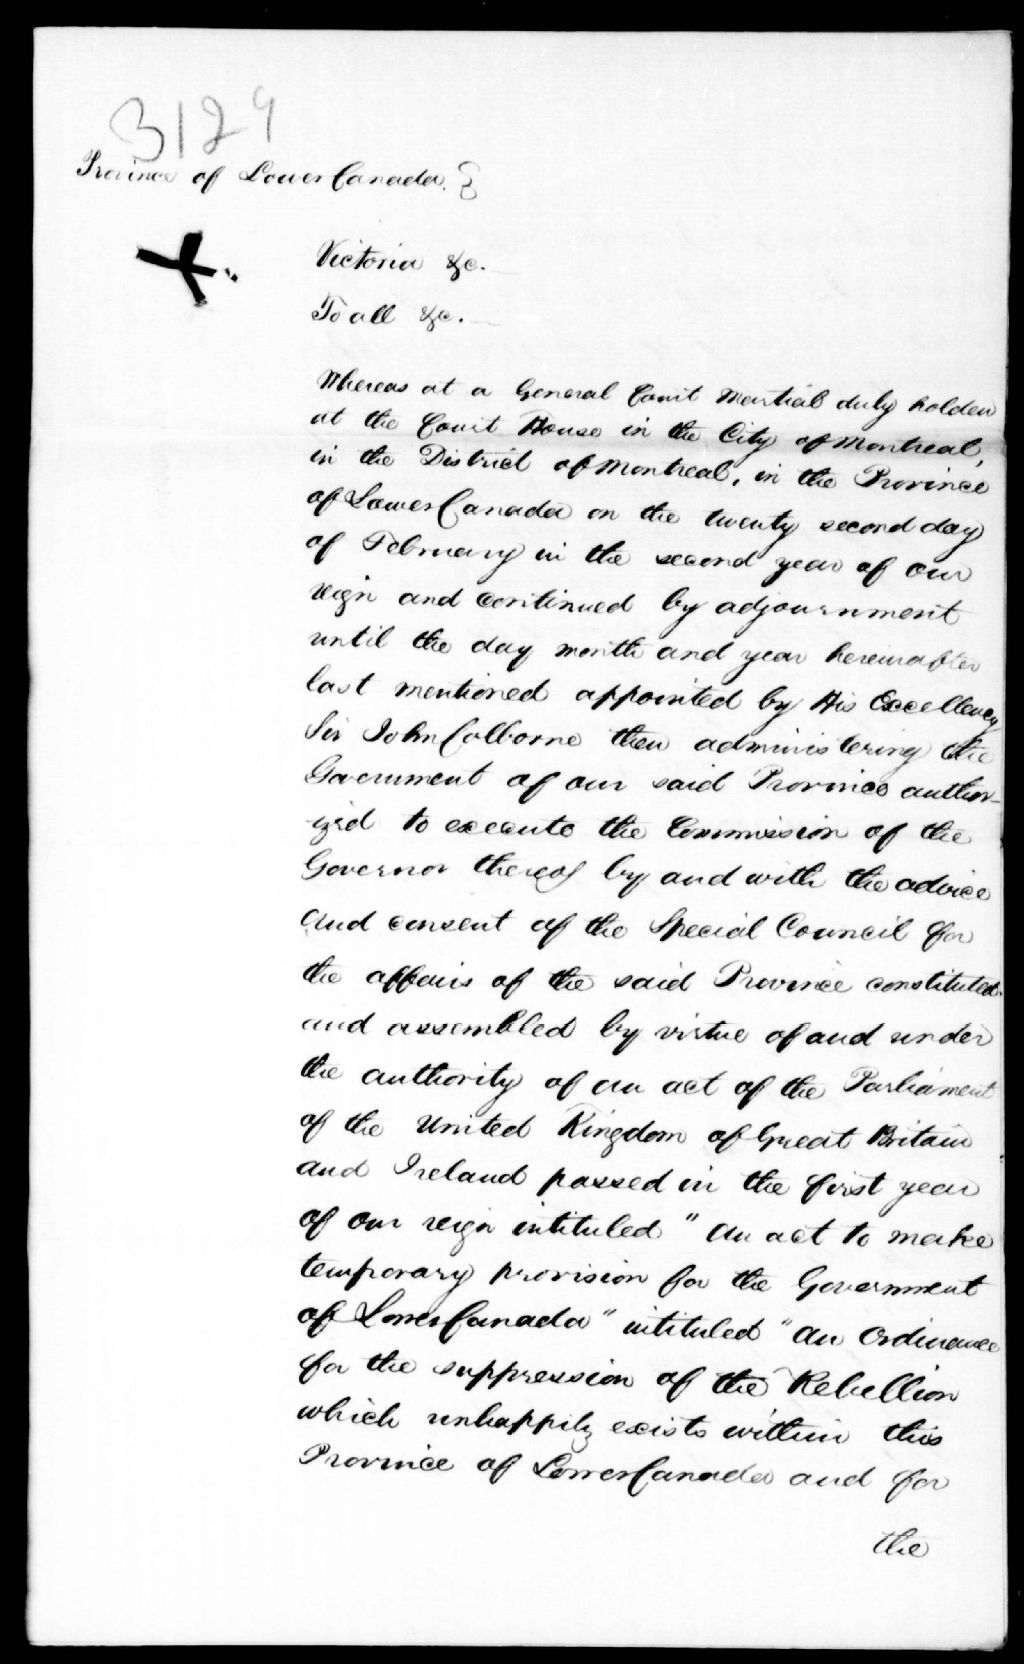 3129
Province of Lower Canada.
Victoria &c.
To all &c.
Whereas at a General Court Martial duly holden
at the Court House in the City of Montreal,
in the District of Montreal, in the Province
of Lower Canada on the twenty second day
of February in the second year of our
reign and continued by adjournment
until the day month and year hereinafter
last mentioned appointed by His Excellency
Sir John Colborne then administering the
Government of our said Province author-
ized to execute the Commission of the
Governor thereof by and with the advice
and consent of the Special Council for
the affairs of the said Province constituted
and assembled by virtue of and under
the authority of an act of the Parliament
of the United Kingdom of Great Britain
and Ireland passed in the first year
of our reign intituled " An act to make
temporary provision for the Government
of Lower Canada " intituled " An Ordinance
for the suppression of the Rebellion
which unhappily exists within this
Province of Lower Canada and for
the